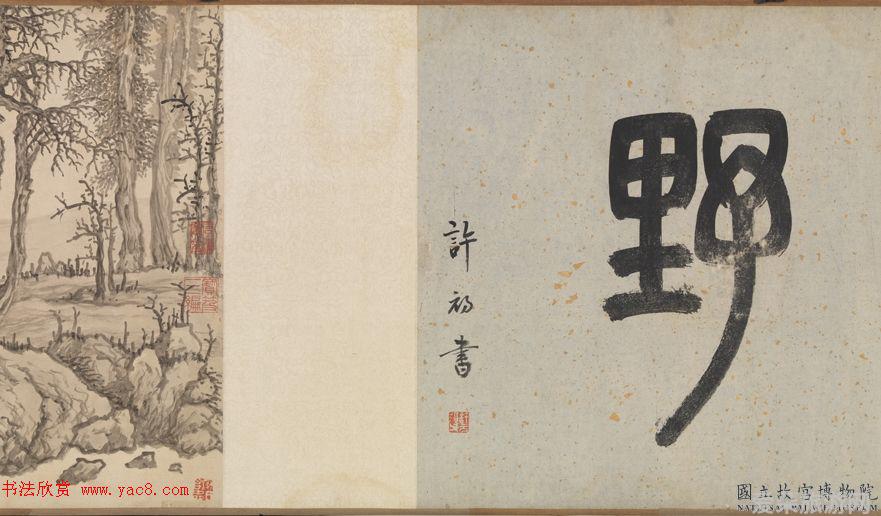 野
許初書
國立故宮博物院
NATIONAL PALACE MUSEUM
书法欣赏 www.yac8.com